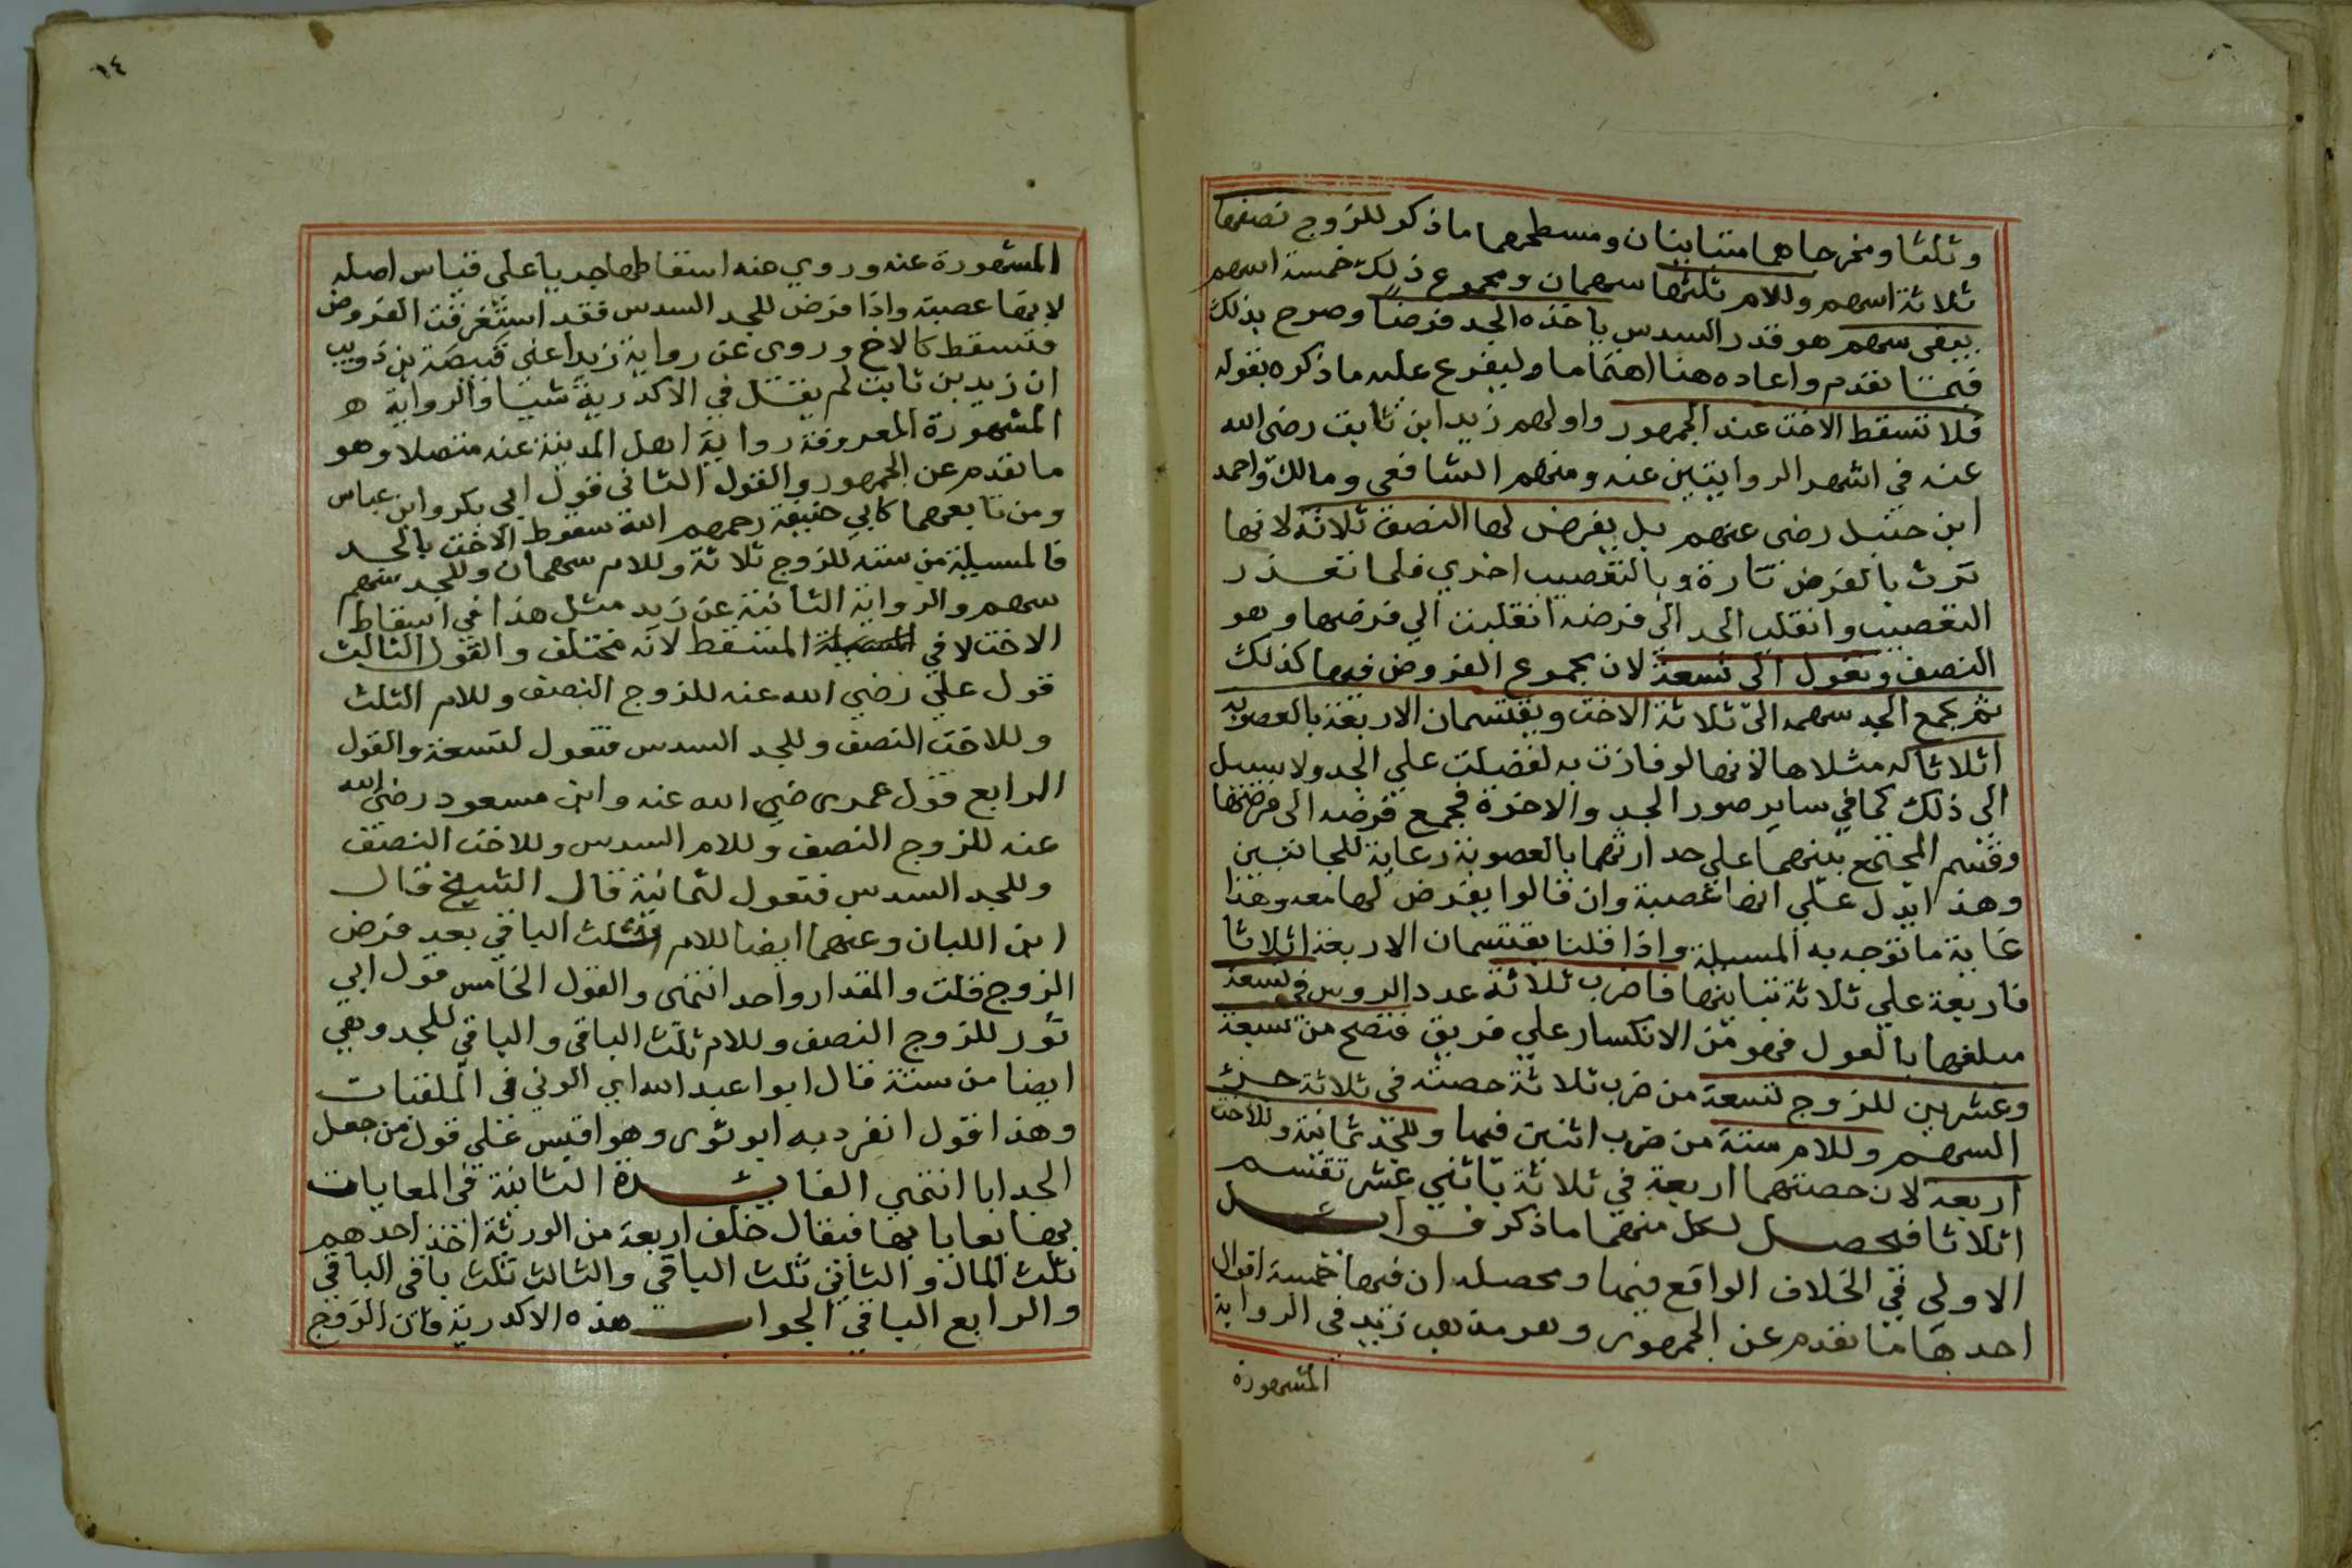 وثلثا ومخرجاهما متباينان ومسطحهما ما ذكر للزوج نصفها
ثلاثة اسهم وللام ثلثها سهمان ومجموع ذلك خمسة اسهم
يبقى سهم هو قدر السدس ياخذه الجد فرضا وصرح بذلك
فيما تقدم واعاده هنا اهتماما وليفرع عليه ما ذكره بقوله
فلا تسقط الاخت عند الجمهور واولهم زيد ابن ثابت رضى الله
عنه في اشهر الروايتين عنه ومنهم الشافعي ومالك واحمد
ابن حنبل رضى عنهم بل يفرض لها النصف ثلاثة لانها
ترث بالفرض تارة وبالتعصيب اخري فلما تعذر
التعصيب وانقلب الجد الى فرضه انقلبت الي فرضها وهو
النصف وتعول الى تسعة لان مجموع الفروض فيها كذلك
ثم يجمع الجد سهمه الى ثلاثة الاخت ويقتسمان الاربعة بالعصوبة
اثلاثا له مثلاها لانها لو فازت به لفضلت علي الجد ولا سبيل
الى ذلك كما في ساير صور الجد والاخوة فجمع فرضه الى فرضها
وقسم المجتمع بينهما علي حد ارثهما بالعصوبة رعاية للجانبين
وهذا يدل علي انها عصبة وان قالوا يفرض لها معه وهذا
غاية ما توجه به المسيلة واذا قلنا يقتسمان الاربعة اثلاثا
فاربعة علي ثلاثة تباينها فاضرب ثلاثة عدد الروس في تسعة
مبلغها بالعول فهو من الانكسار علي فريق فتصح من سبعة
وعشرين للزوج تسعة من ضرب ثلاثة حصته في ثلاثة جزء
السهم وللام ستة من ضرب اثنين فيها وللجد ثمانية وللاخت
اربعة لان حصتهما اربعة في ثلاثة باثني عشر تقسم
اثلاثا فيحصل لكل منهما ما ذكر فوايد
الاولى في الخلاف الواقع فيها ومحصله ان فيها خمسة اقوال
احدها ما تقدم عن الجمهور وهو مذهب زيد في الرواية
المشهورة
١٤
المشهورة عنه وروي عنه اسقاطها جريا على قياس اصله
لانها عصبة واذا فرض للجد السدس فقد استغرقت الفروض
فتسقط كالاخ وروى عن رواية زيد اعني قبيصة بن ذويب
ان زيد بن ثابت لم يقل في الاكدرية شيا والرواية ه
المشهورة المعروفة رواية اهل المدينة عنه متصلا وهو
ما تقدم عن الجمهور والقول الثاني قول ابي بكر وابن عباس
ومن تابعهما كابي حنيفة رحمهم الله سقوط الاخت بالجد
فالمسيلة من ستة للزوج ثلاثة وللام سهمان وللجد سهم
سهم والرواية الثانية عن زيد مثل هذا في اسقاط
الاخت لا في المسقط لانه مختلف والقول الثالث
قول علي رضي الله عنه للزوج النصف وللام الثلث
وللاخت النصف وللجد السدس فتعول لتسعة والقول
الرابع قول عمر رضي الله عنه وابن مسعود رضى الله
عنه للزوج النصف وللام السدس وللاخت النصف
وللجد السدس فتعول لثمانية قال الشيخ قال
ابن اللبان وعنهما ايضا للام ثلث الباقي بعد فرض
الزوج قلت والمقدار واحد انتهى والقول الخامس قول ابي
ثور للزوج النصف وللام ثلث الباقى والباقي للجد وهي
ايضا من ستة قال ابوا عبد الله اي الوني في الملقنات
وهذا قول انفرد به ابو ثور وهو اقيس علي قول من جعل
الجد ابا انتهى الفايدة الثانية في المعايات
بها يعايا بها فيقال خلف اربعة من الورثة اخذ احدهم
ثلث المال والثاني ثلث الباقي والثالث ثلث باقى الباقي
والرابع الباقي الجواب هذه الاكدرية فان الزوج